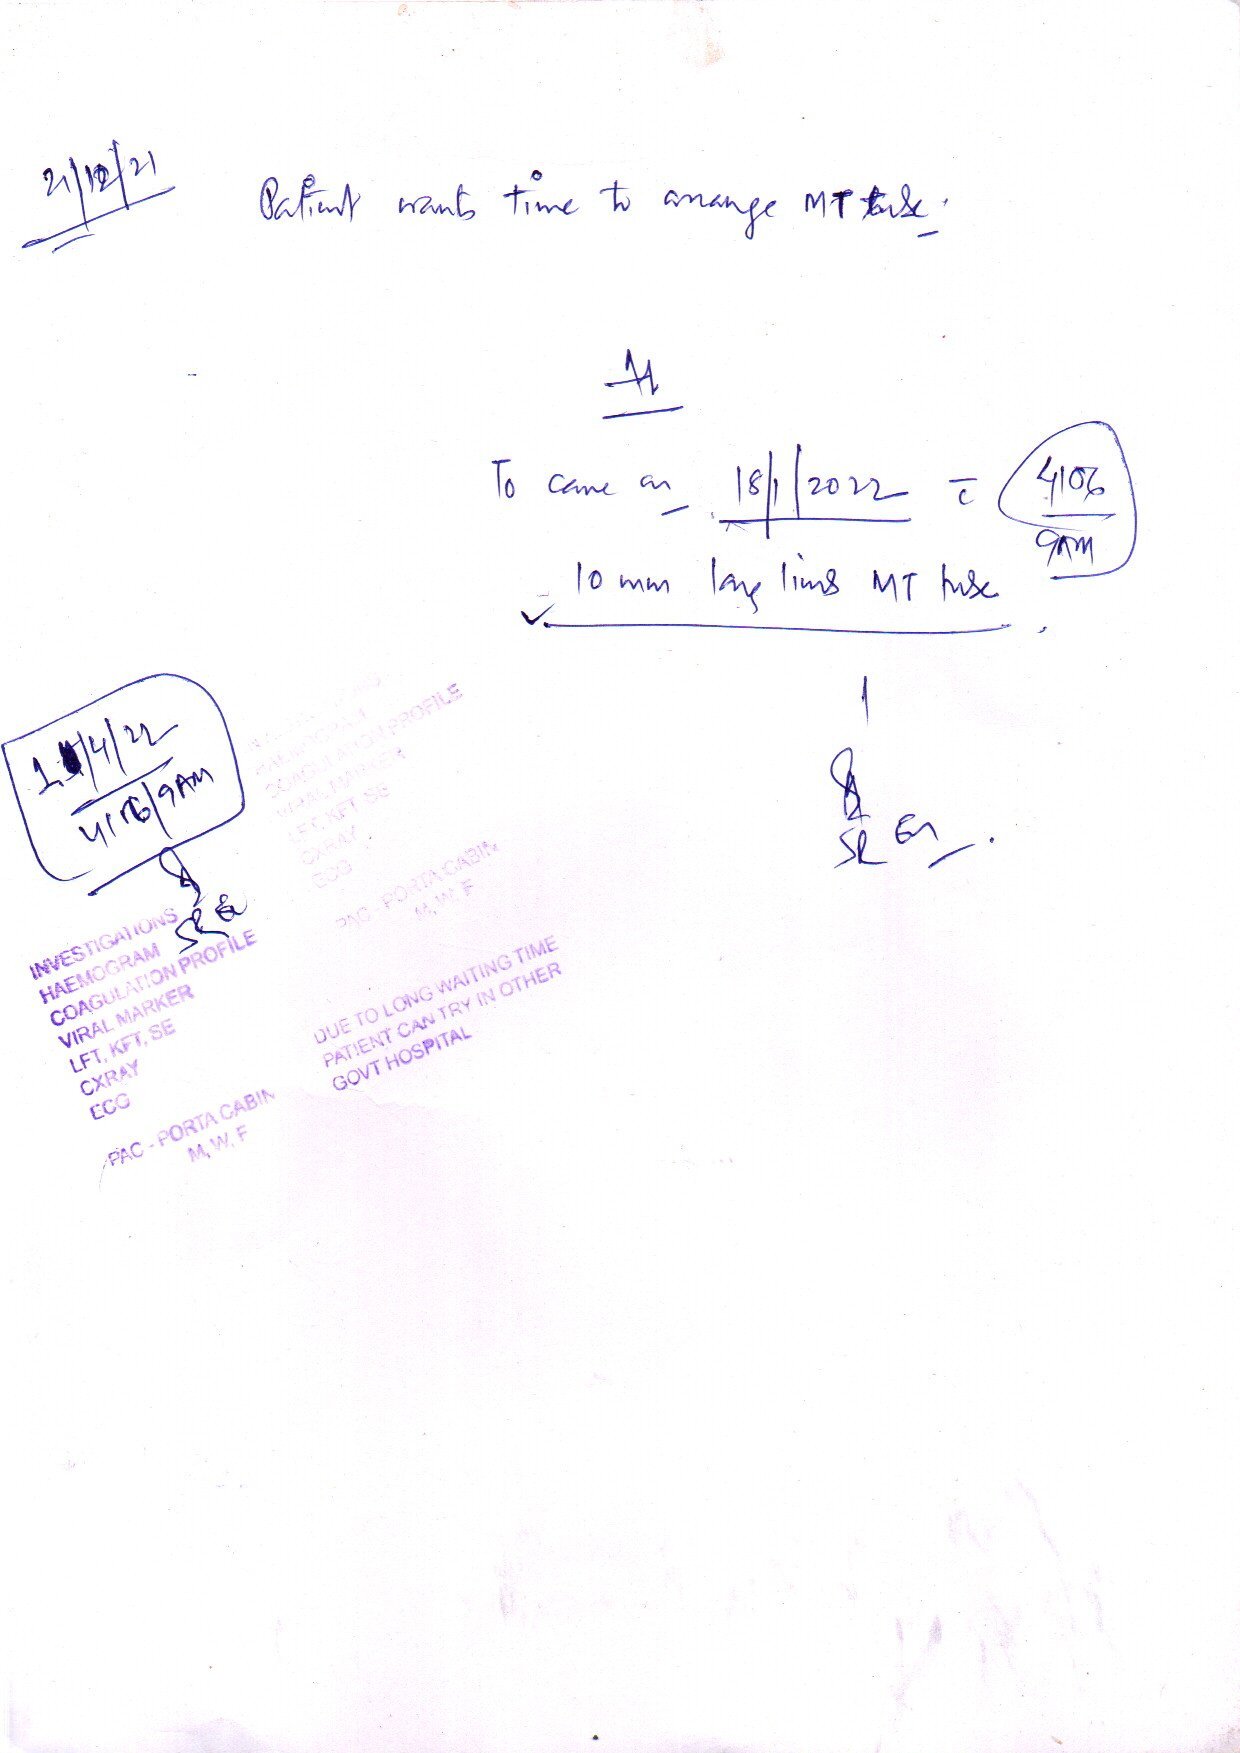 21/12/21
Patient wants time to arrange MT tube.
To come on 18/1/2022 c̄ 4106
9AM
10 mm long limb MT tube.
SR
/4/22
4106/9AM
SR
COAGULATION PROFILE
VIRAL MARKER
LFT, KFT, SE
CXRAY
ECG
PAC - PORTA CABIN
M, W, F
INVESTIGATIONS
HAEMOGRAM
COAGULATION PROFILE
VIRAL MARKER
LFT, KFT, SE
CXRAY
ECG
PAC - PORTA CABIN
M, W, F
DUE TO LONG WAITING TIME
PATIENT CAN TRY IN OTHER
GOVT HOSPITAL